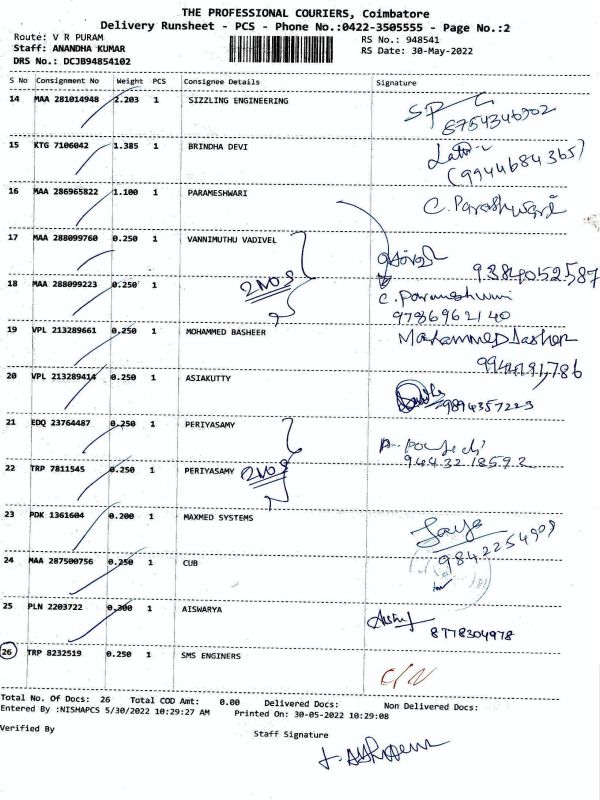 THE PROFESSIONAL COURIERS, Coimbatore
Delivery Runsheet - PCS - Phone No.:0422-3505555 - Page No.:2
Route: V R PURAM RS No.: 948541
Staff: ANANDHA KUMAR RS Date: 30-May-2022
DRS No.: DCJB94854102
S No Consignment No Weight PCS Consignee Details Signature
14 MAA 281014948 2.203 1 SIZZLING ENGINEERING
8754346902
15 KTG 7106042 1.385 1 BRINDHA DEVI
(9944684365)
16 MAA 286965822 1.100 1 PARAMESHWARI C. Parashwari
17 MAA 288099760 0.250 1 VANNIMUTHU VADIVEL
9384052587
18 MAA 288099223 0.250 1 2 NOS C. Parameshwari
9786962140
19 VPL 213289661 0.250 1 MOHAMMED BASHEER Mohammed Basher
20 VPL 213289414 0.250 1 ASIAKUTTY
9894357223
21 EDQ 23764487 0.250 1 PERIYASAMY
22 TRP 7811545 0.250 1 PERIYASAMY 2 NOS 9443218592
23 PDK 1361604 0.200 1 MAXMED SYSTEMS
9842254909
24 MAA 287500756 0.250 1 CUB
25 PLN 2203722 0.300 1 AISWARYA
8778304978
26 TRP 8232519 0.250 1 SMS ENGINERS C/N
Total No. Of Docs: 26 Total COD Amt: 0.00 Delivered Docs: Non Delivered Docs:
Entered By :NISHAPCS 5/30/2022 10:29:27 AM Printed On: 30-05-2022 10:29:08
Verified By Staff Signature